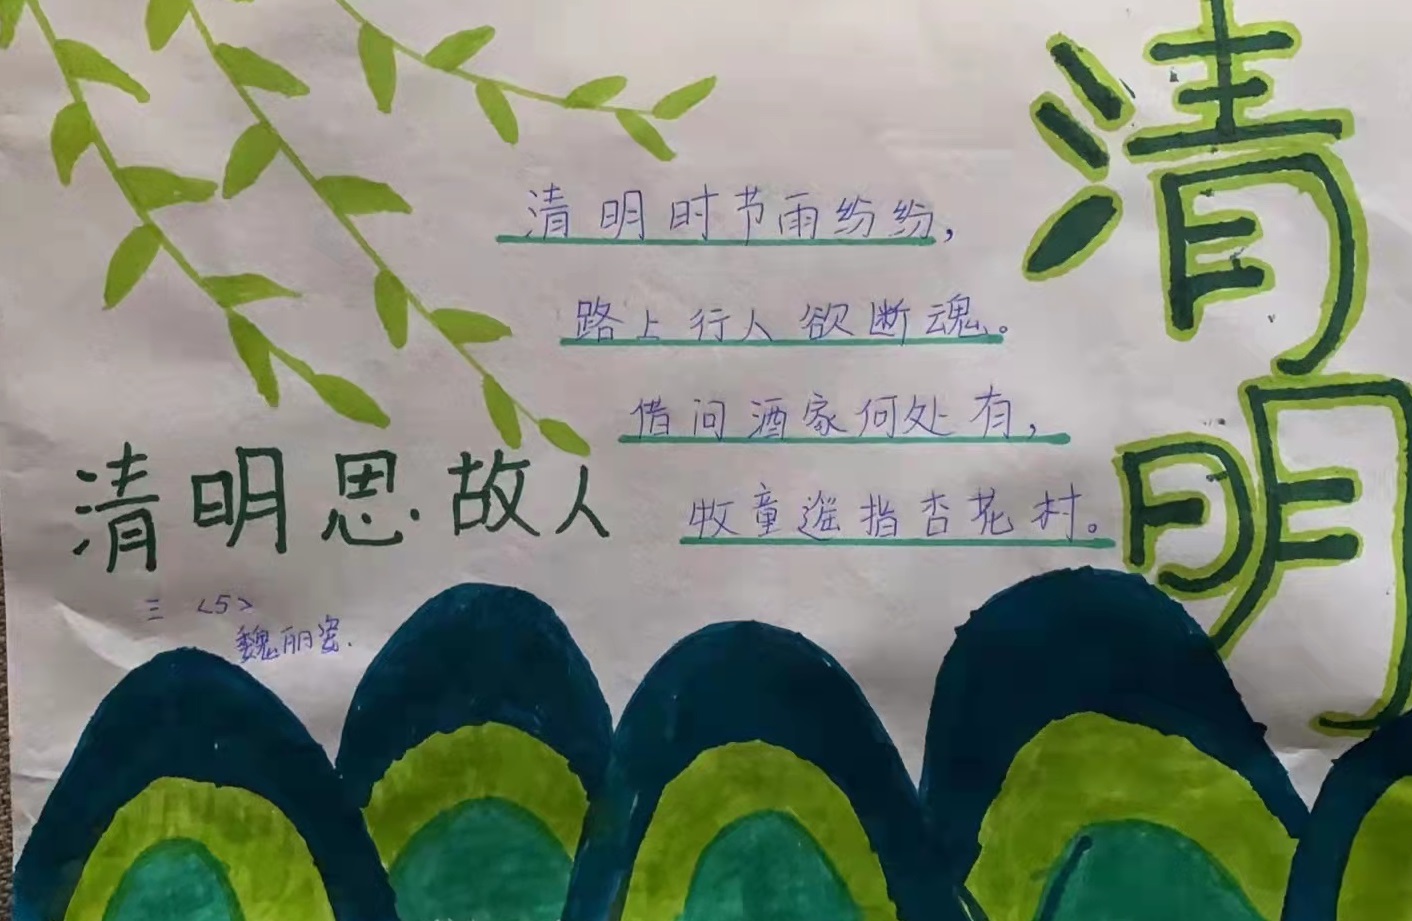 清明
清明时节雨纷纷，
路上行人欲断魂。
借问酒家何处有，
牧童遥指杏花村。
清明思故人
三<5>
魏丽瓷.